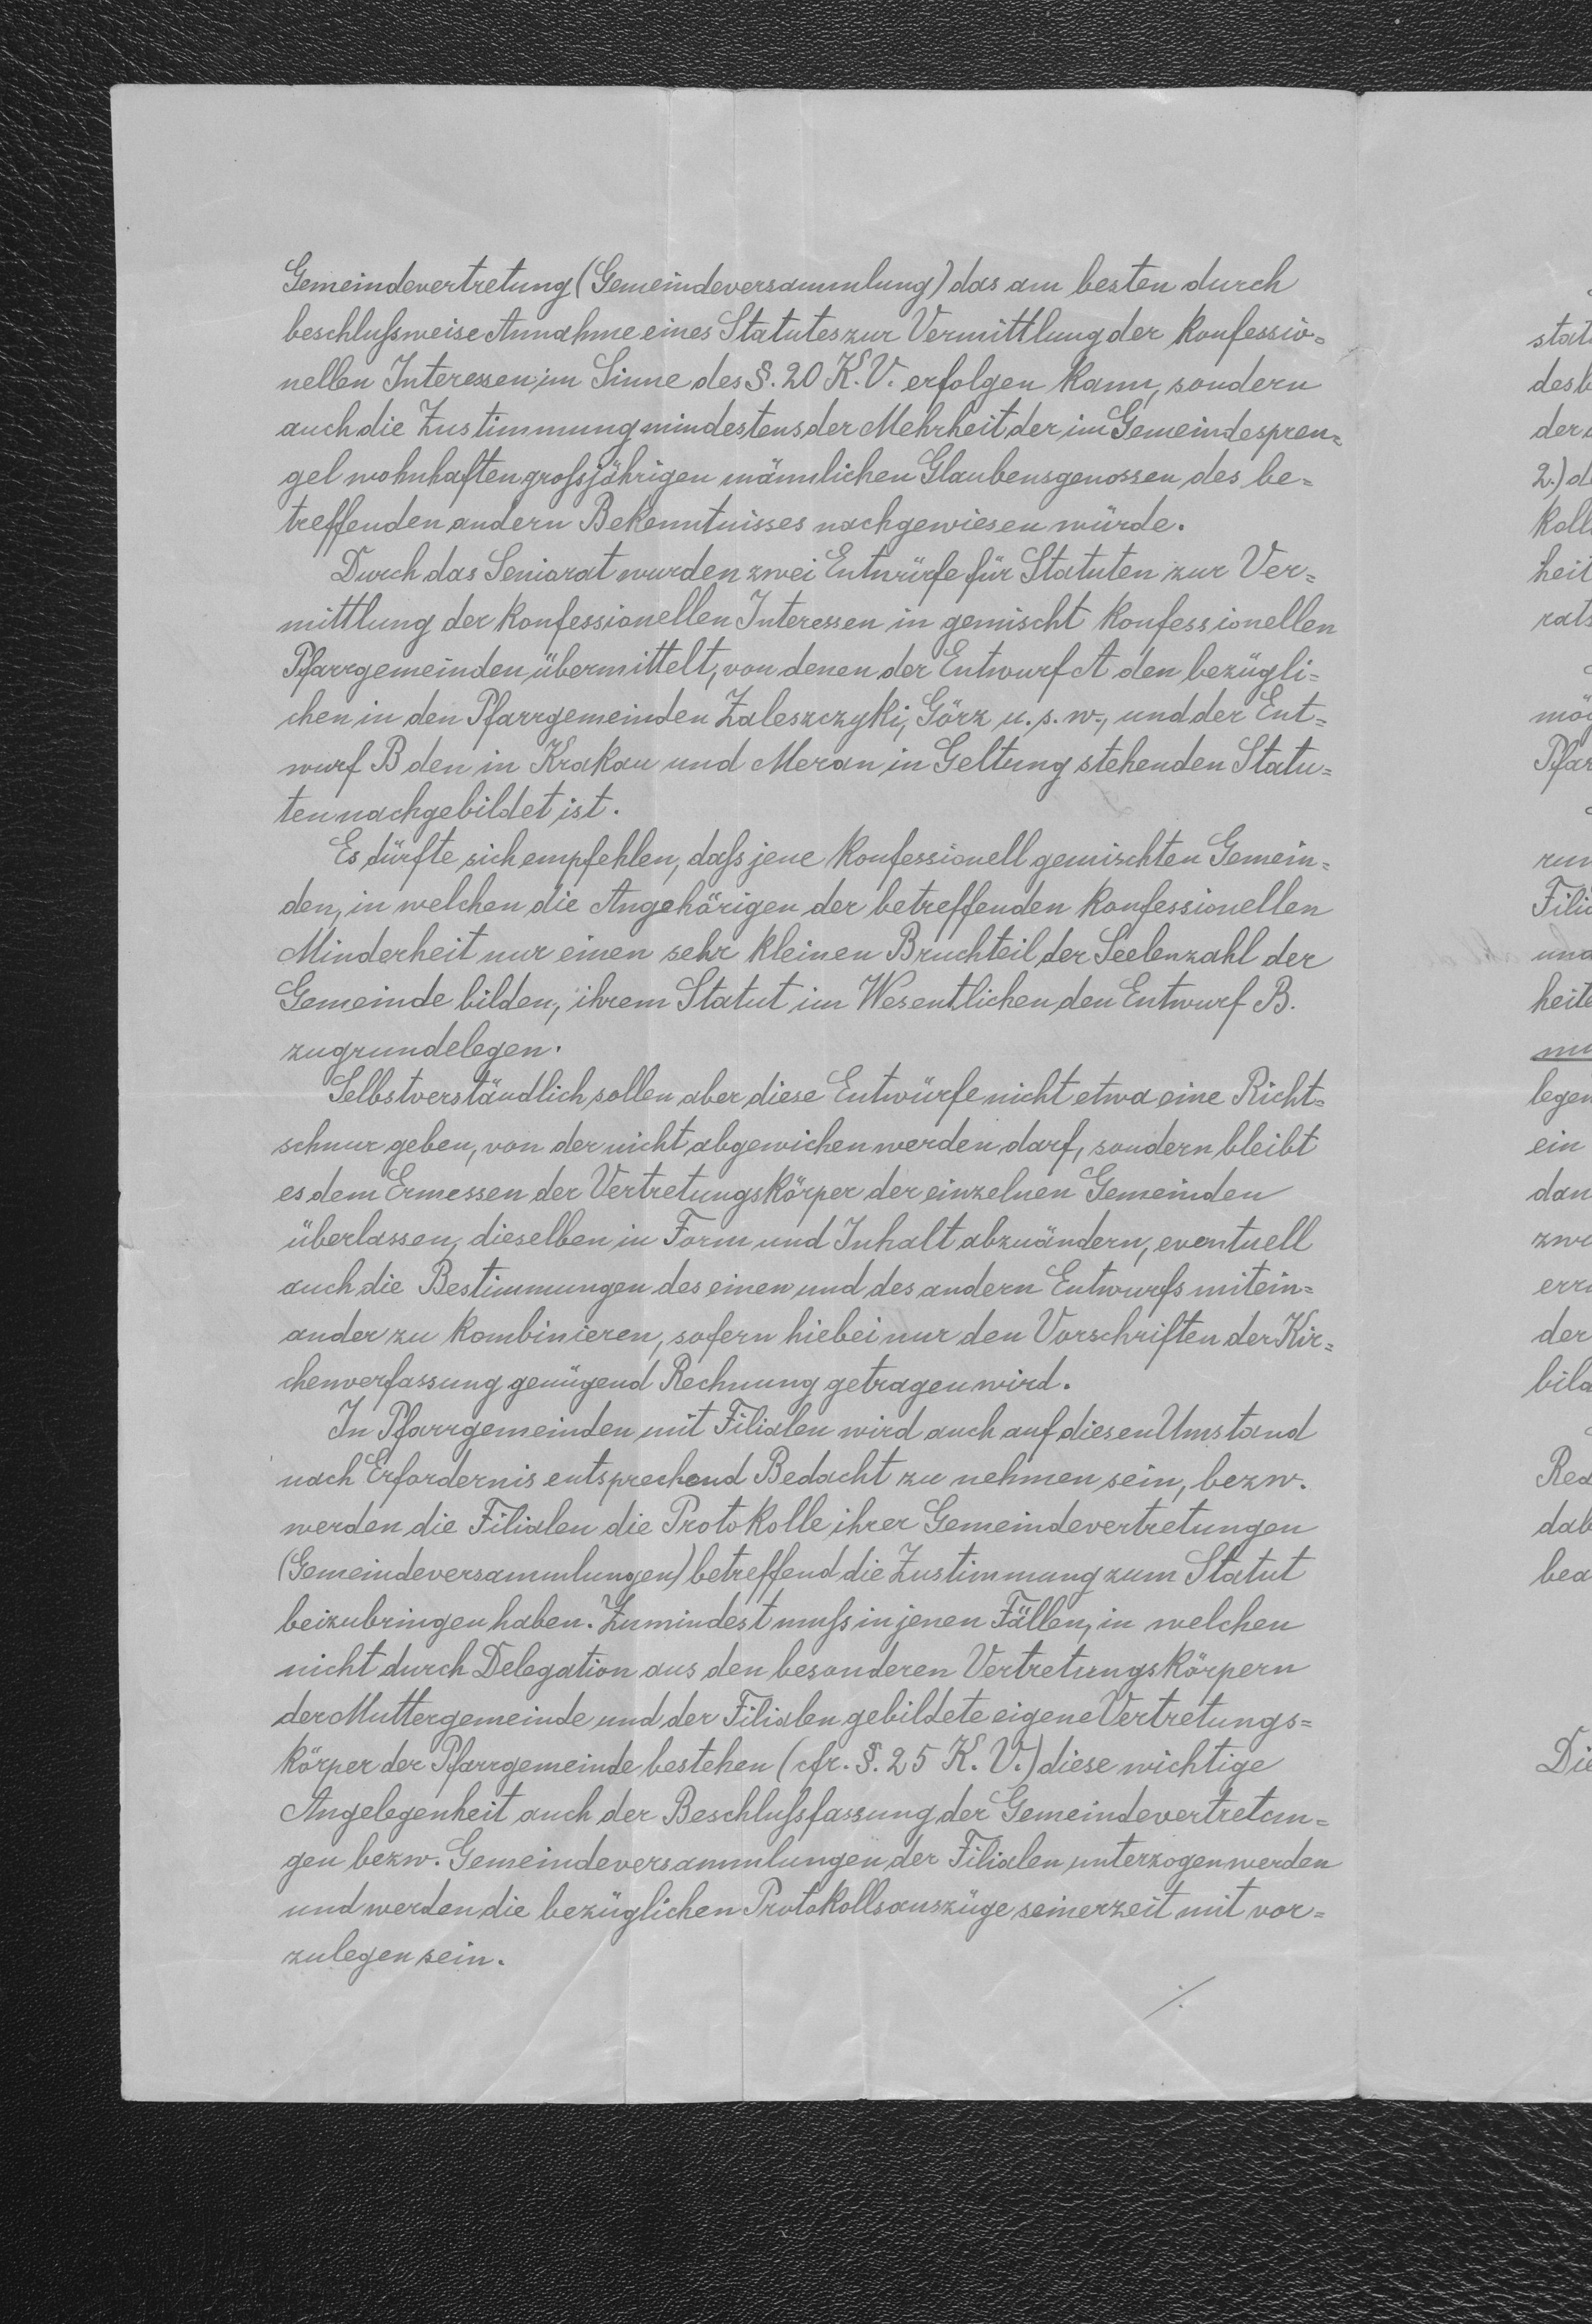 Gemeindevertretung (Gemeindeversammlung) das am besten durch
beschlußweise Annahme eines Statutes zur Vermittlung der konfessio=
nellen Interessen im Sinne des §. 20 K. V. erfolgen kann, sondern
auch die Zustimmung mindestens der Mehrheit der im Gemeindespren=
gel wohnhaften großjährigen männlichen Glaubensgenossen des be=
treffenden andern Bekenntnisses nachgewiesen würde.
Durch das Seniorat wurden zwei Entwürfe für Statuten zur Ver=
mittlung der konfessionellen Interessen in gemischt konfessionellen
Pfarrgemeinden übermittelt, von denen der Entwurf A den bezügli=
chen in den Pfarrgemeinden Zaleszczyki, Görz u. s. w., und der Ent=
wurf B den in Krakau und Meran in Geltung stehenden Statu=
ten nachgebildet ist.
Es dürfte sich empfehlen, daß jene konfessionell gemischten Gemein=
den, in welchen die Angehörigen der betreffenden konfessionellen
Minderheit nur einen sehr kleinen Bruchteil der Seelenzahl der
Gemeinde bilden, ihrem Statut im Wesentlichen den Entwurf B.
zugrundelegen.
Selbstverständlich sollen aber diese Entwürfe nicht etwa eine Richt=
schnur geben, von der nicht abgewichen werden darf, sondern bleibt
es dem Ermessen der Vertretungskörper der einzelnen Gemeinden
überlassen, dieselben in Form und Inhalt abzuändern, eventuell
auch die Bestimmungen des einen und des andern Entwurfs mitein=
ander zu kombinieren, sofern hiebei nur den Vorschriften der Kir=
chenverfassung genügend Rechnung getragen wird.
In Pfarrgemeinden mit Filialen wird auch auf diesen Umstand
nach Erfordernis entsprechend Bedacht zu nehmen sein, bezw.
werden die Filialen die Protokolle ihrer Gemeindevertretungen
(Gemeindeversammlungen) betreffend die Zustimmung zum Statut
beizubringen haben. Zumindest muß in jenen Fällen, in welchen
nicht durch Delegation aus den besonderen Vertretungskörpern
der Muttergemeinde und der Filialen gebildete eigene Vertretungs=
körper der Pfarrgemeinde bestehen (cfr. §. 25 K. V.) diese wichtige
Angelegenheit auch der Beschlußfassung der Gemeindevertretun=
gen bezw. Gemeindeversammlungen der Filialen unterzogen werden
und werden die bezüglichen Protokollsauszüge seinerzeit mit vor=
zulegen sein.
./.